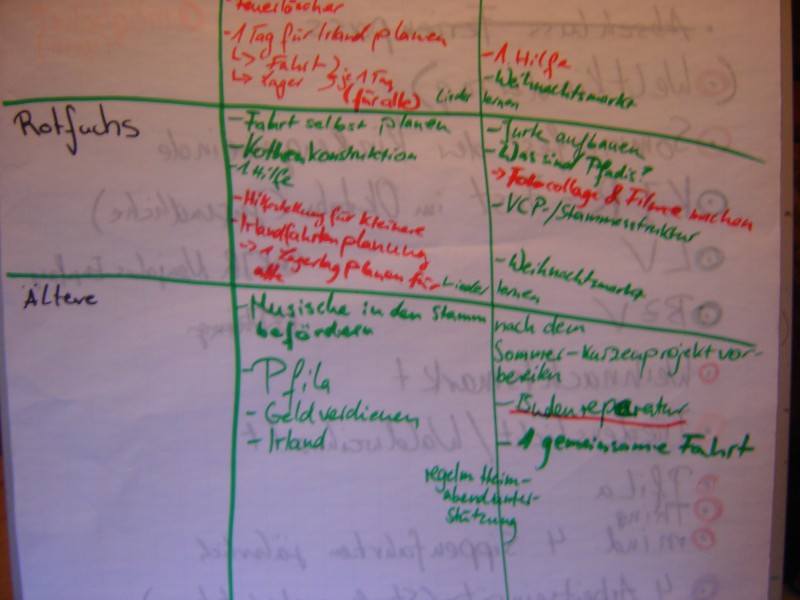 Feuerlöscher
- 1 Tag für Irland planen
↳ Fahrt
↳ Lager } je 1 Tag
(für alle)
- 1. Hilfe
- Weihnachtsmarkt
Lieder lernen
Rotfuchs
- Fahrt selbst planen
- Kothenkonstruktion
- 1 Hilfe
- Hilfestellung für kleinere
- Irlandfahrtenplanung
-> 1 Lagertag planen für
alle
- Jurte aufbauen
- Was sind Pfadis?
-> Fotocollage & Filme machen
- VCP-/Stammesstruktur
- Weihnachtsmarkt
Lieder lernen
Ältere
- Musische in den Stamm
befördern
- Pfila
- Geld verdienen
- Irland
nach dem
Sommer-Kurzenprojekt vor-
bereiten
- Budenreparatur
- 1 gemeinsame Fahrt
regelm Heim-
abendunter-
stützung